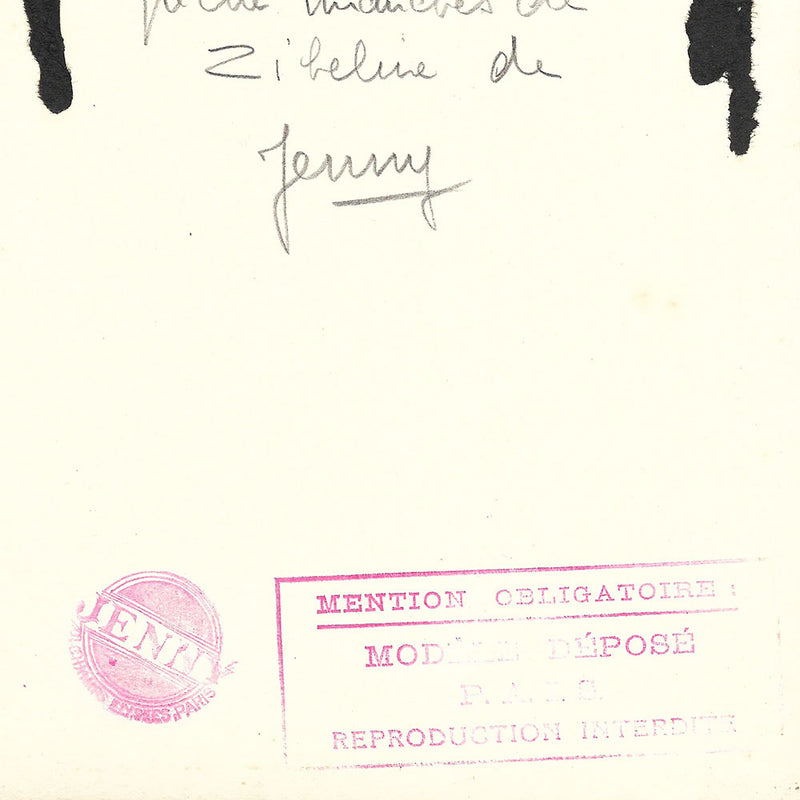 manches de
Zibeline de
Jenny
JENNY
ELYSÉES.PARIS
MENTION OBLIGATOIRE :
MODÈLE DÉPOSÉ
P.A.I.S
REPRODUCTION INTERDITE